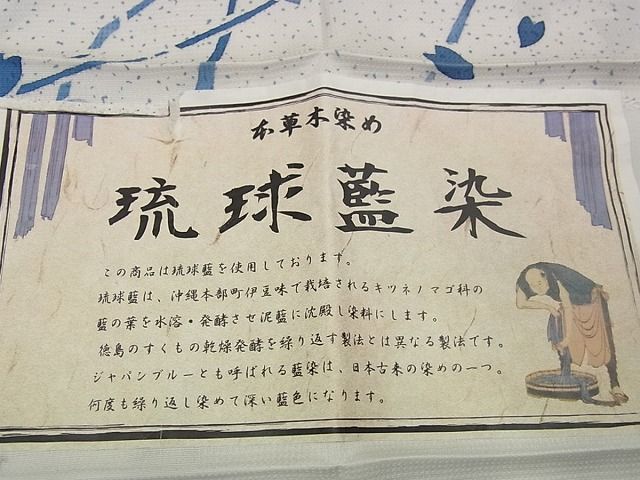 本草木染め
琉球藍染
この商品は琉球藍を使用しております。
琉球藍は、沖縄本部町伊豆味で栽培されるキツネノマゴ科の
藍の葉を水溶・発酵させ泥藍に沈殿し染料にします。
徳島のすくもの乾燥発酵を繰り返す製法とは異なる製法です。
ジャパンブルーとも呼ばれる藍染は、日本古来の染めの一つ。
何度も繰り返し染めて深い藍色になります。